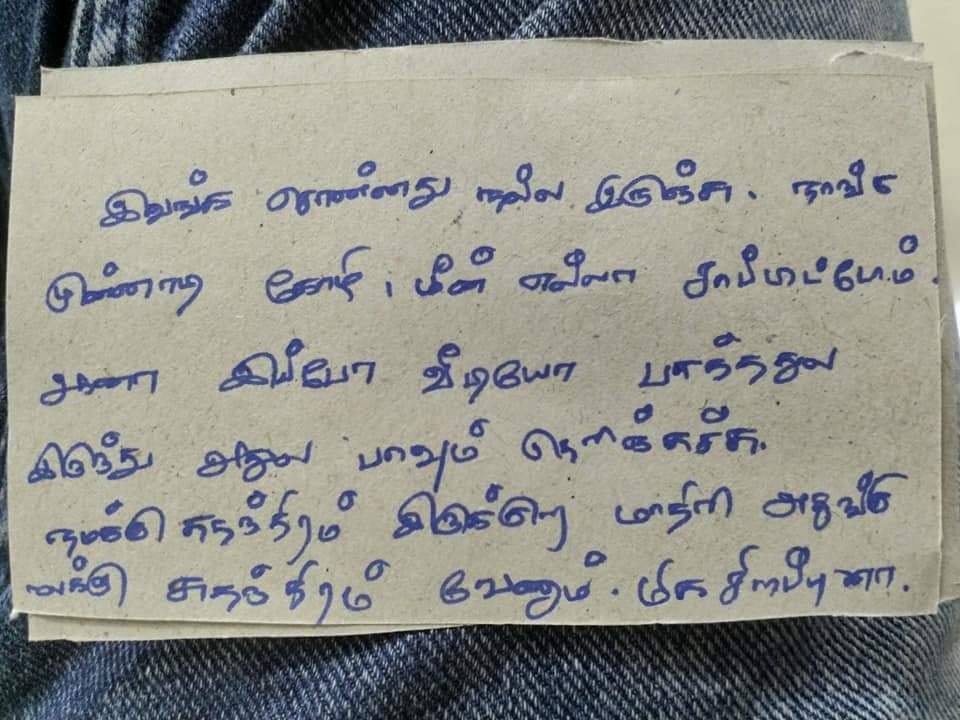 இவங்க சொன்னது நல்ல இருந்சு. நாங்க
முன்னாடி கோழி, மீன் எல்லா சாப்பிடுவோம்.
ஆனா இப்போ வீடியோ பாத்ததுல
இருந்து அதுல பாவும் தெரிக்சுச்சு.
நமக்கு சுதந்திரம் இருக்கிற மாதிரி அதுங்க
ளுக்கு சுதந்திரம் வேணும். மிக சிறப்புனா.